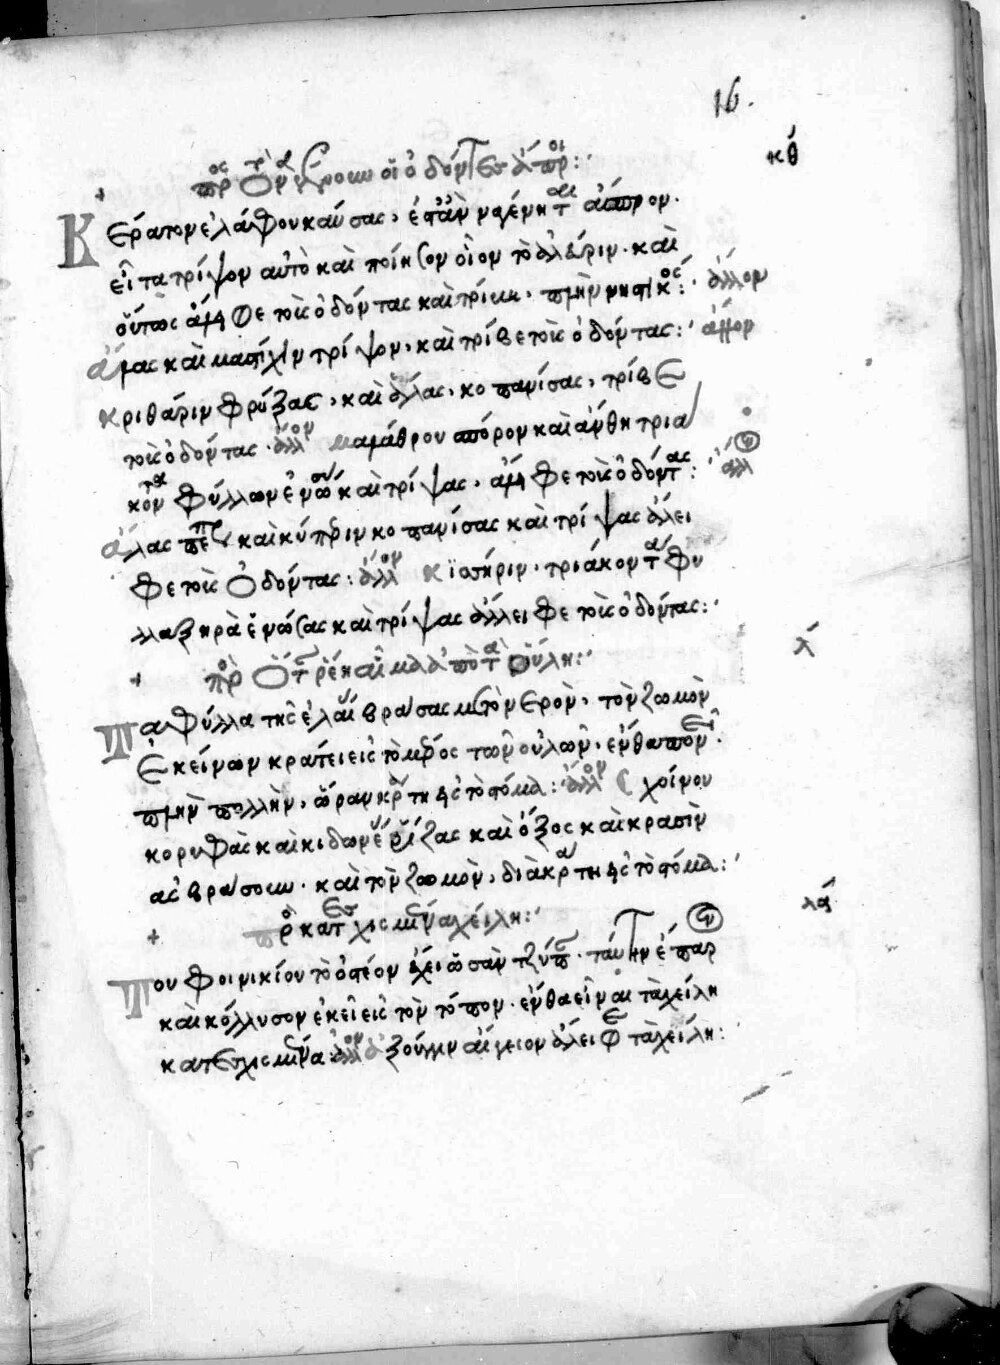 16.
κθ
πρὸς τὸ νὰ γένουν οἱ ὀδόντες ἄσπροι:
Κέρατον ἐλάφου καύσας, ἐστὰν να γένηται ἄσπρον.
εἶτα τρίψον αὐτὸ καὶ ποίησον οἷον τὸ ἀλεύριν. καὶ
οὕτως ἄλειφε τοὺς ὀδόντας καὶ τρίκη, μαστίχιν τρίψον, ἄλλον
ἅλας καὶ μαστίχην τρίψον, καὶ τρίβε τοὺς ὀδόντας: ἄλλον
κριθάριν φρύξας, καὶ ἅλας, κοπανίσας, τρίβε
τοὺς ὀδόντας. ἄλλον μαράθρου σπόρον καὶ ἄνθη τρια
φύλλων ἑνώσου καὶ τρίψας, ἄλειφε τοὺς ὀδόντας: ἄλλ
ἅλας πιπέρι καὶ κύπριν κοπανίσας καὶ τρίψας ἄλει
φε τοὺς ὀδόντας: ἄλλον κισσήριν, τριάκοντα φύ
λλα ξηρὰ ἑνώσας καὶ τρίψας ἄλειφε τοὺς ὀδόντας:
λ
πρὸς ὅταν ρέῃ αἷμα ἀπὸ τὰ οὔλη:
Τα φύλλα τῆς ἐλαίας βράσας μετὰ νερὸν, τὸν ζωμὸν
ἐκείνων κράτει εἰς τὸ μέρος τῶν οὐλῶν, ἔνθα πονεῖ.
πολλὴν, ὥραν κράτη εἰς τὸ στόμα: ἄλλον σχοίνου
κορυφὰς καὶ κιδωνέας ρίζας καὶ ὄξος καὶ κρασὶν
ἂς βράσουν. καὶ τὸν ζωμὸν, διακράτη εἰς τὸ στόμα:
λα
πρὸς κατεσχισμένα χείλη:
Του φοινικίου τὸ ὀστέον ἔχει ὡσὰν τζύπαν. ταύτην ἔπαρ
καὶ κόλλησον ἐκεῖ εἰς τὸν τόπον. ἔνθα εἶναι τὰ χείλη
κατεσχισμένα. ἄλλον ἀξούγγιν αἴγειον ἄλειφε τὰ χείλη: